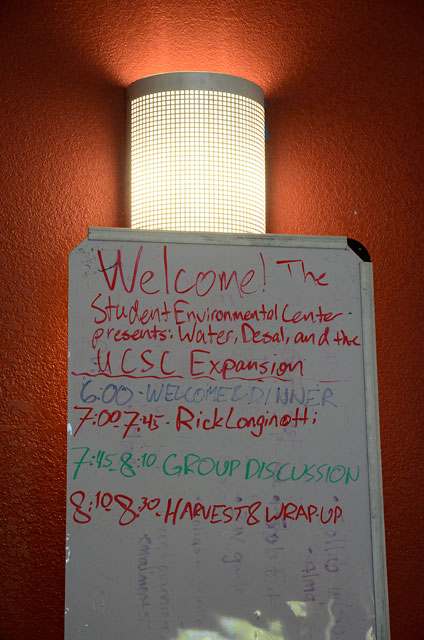 Welcome! The
Student Environmental Center
presents: Water, Desal, and the
UCSC Expansion
6:00 - WELCOME & DINNER
7:00 7:45 - Rick Longinotti
7:45 8:10 - GROUP DISCUSSION
8:10 8:30 - HARVEST & WRAP-UP